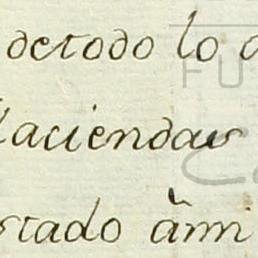 detodo lo
Haciendas
stado ãmi